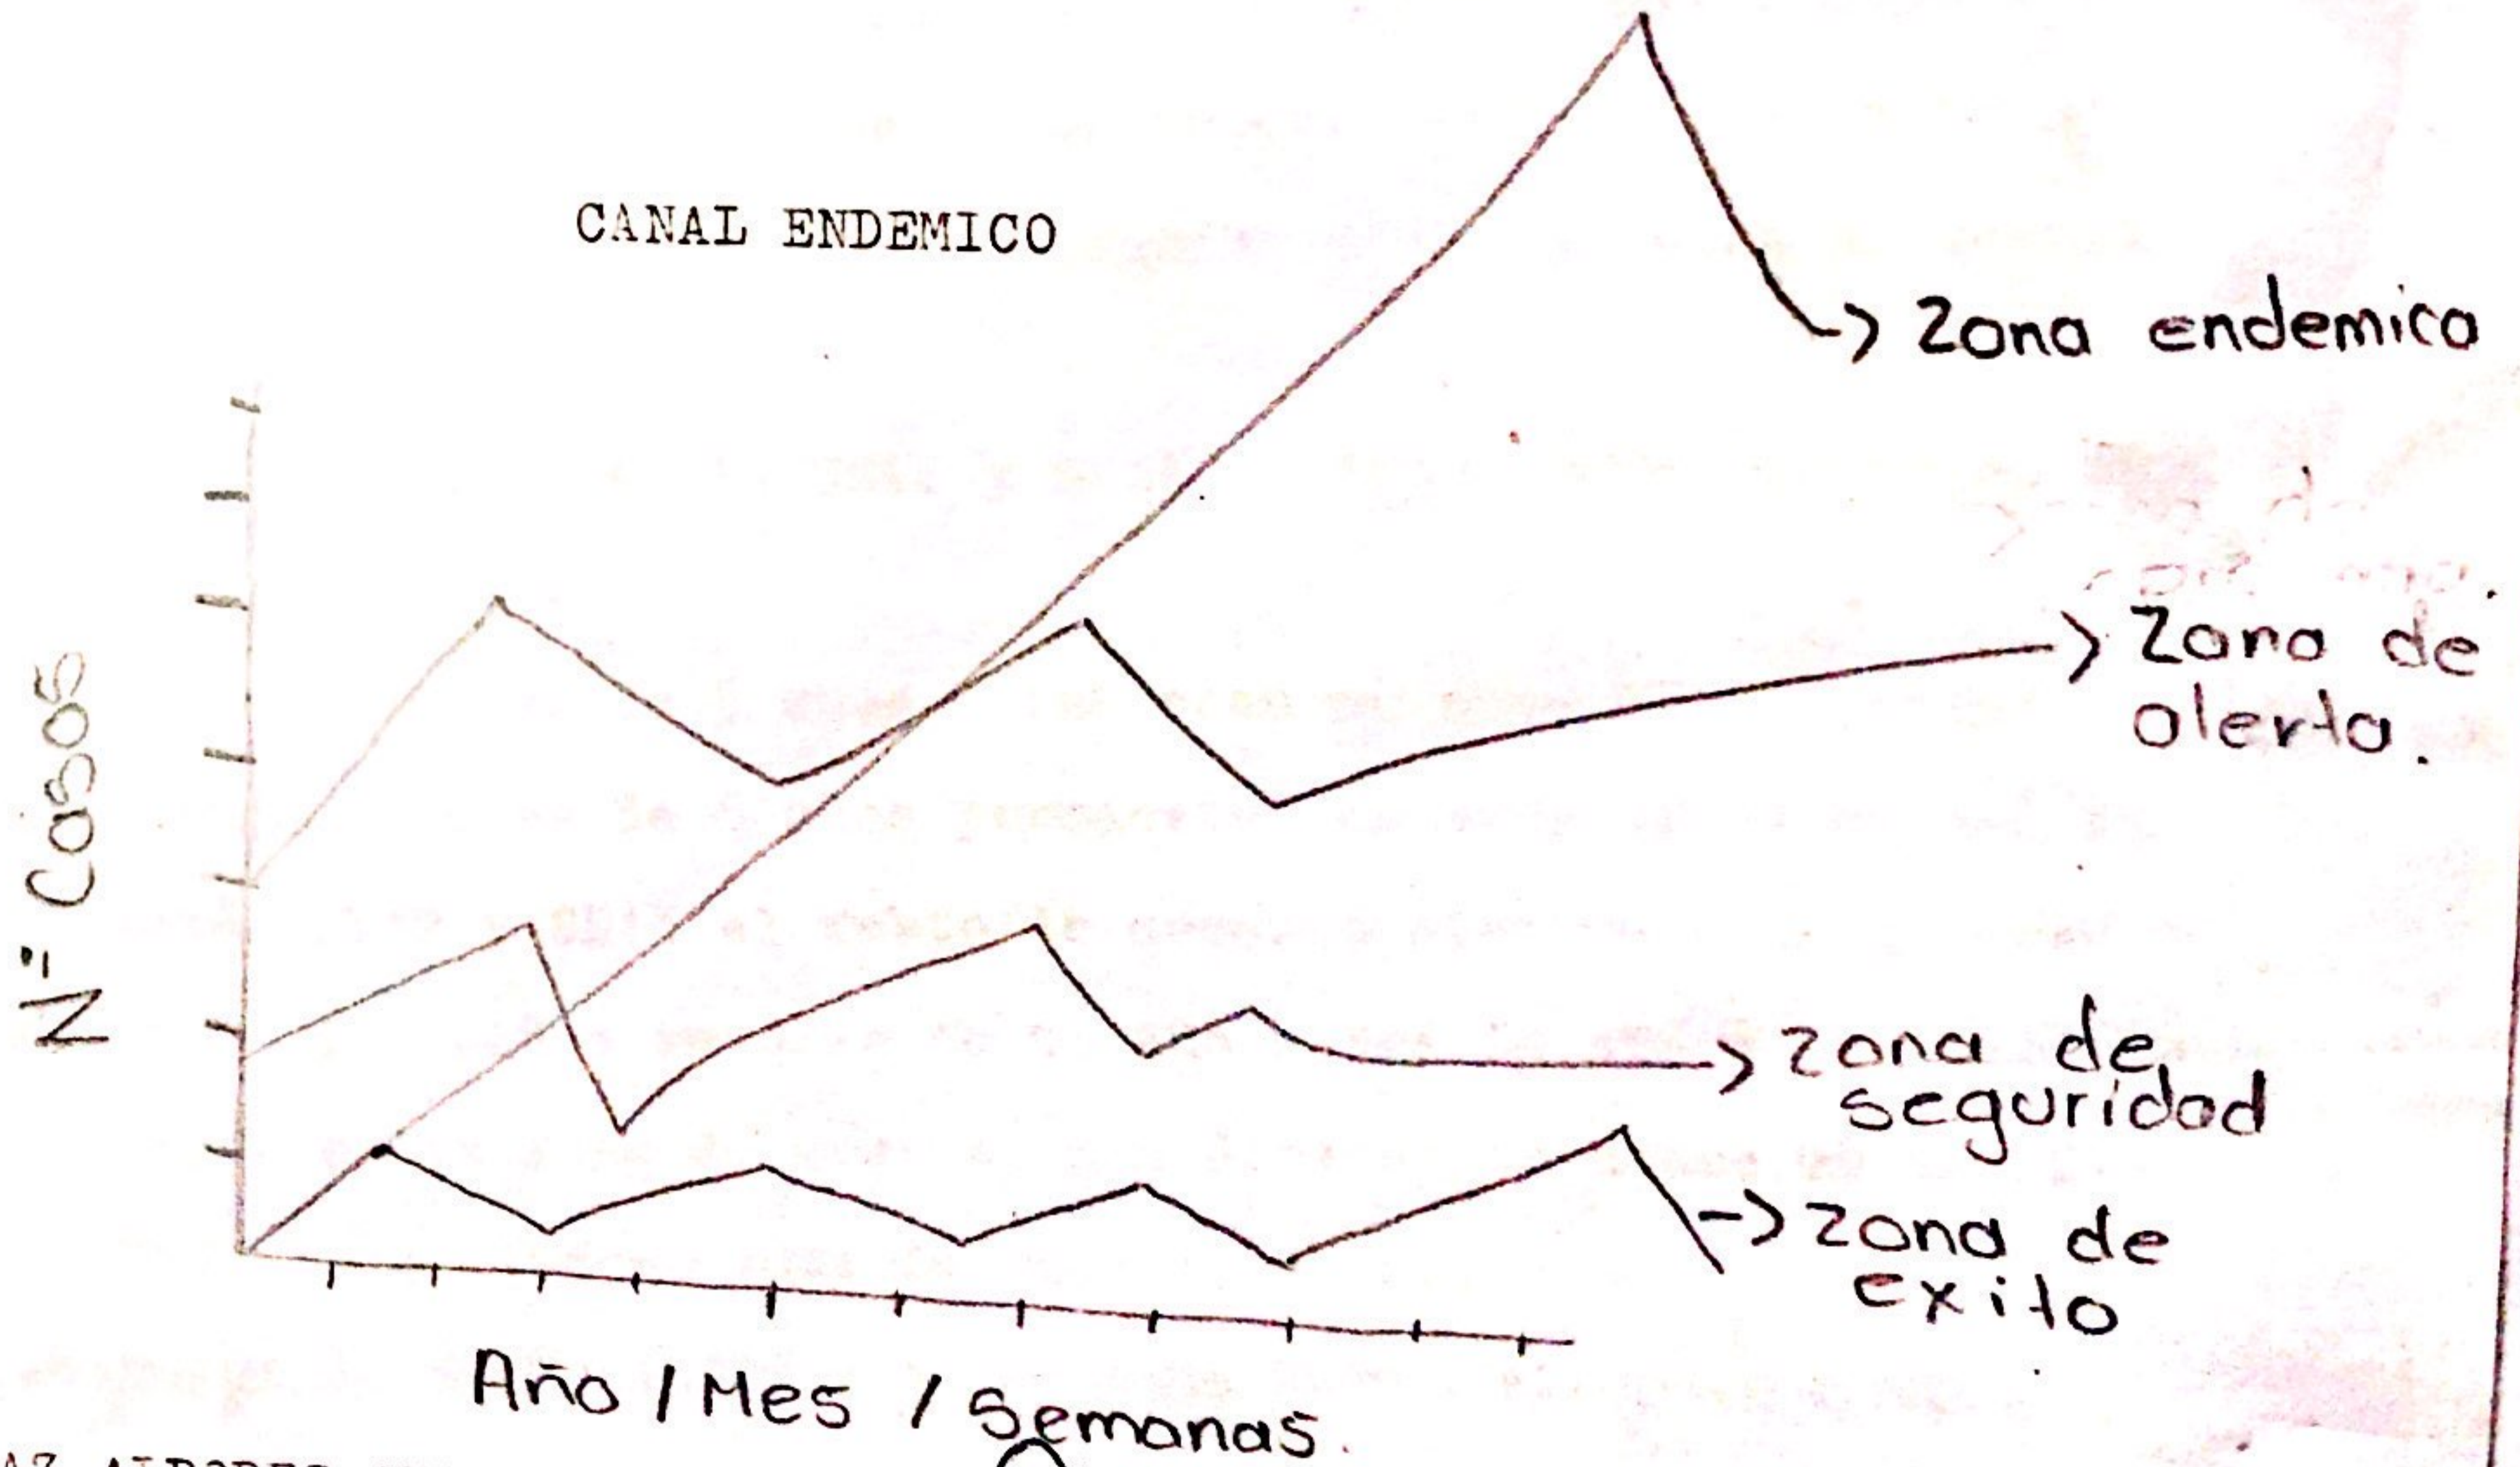 CANAL ENDEMICO
Zona endemica
Zona de
alerta.
Nº Casos
Zona de
seguridad
Zona de
exito
Año / Mes / Semanas.